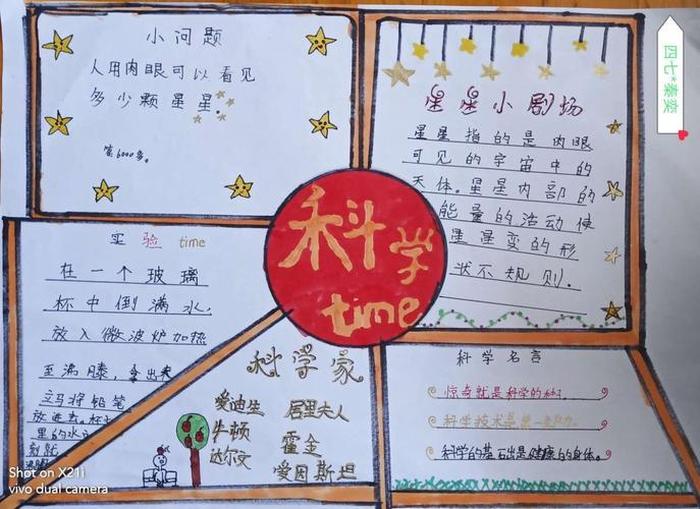 小问题
人用肉眼可以看见
多少颗星星。
答6000多。
四七*秦奕
星星小剧场
星星指的是肉眼
可见的宇宙中的
天体。星星内部的
能量的活动使
星星变的形
状不规则.
科学
time
实验 time
在一个玻璃
杯中倒满水,
放入微波炉加热
至沸腾,拿出来
立马将铅笔
放进去。杯
里的水
刻就
科学家
爱迪生 居里夫人
牛顿 霍金
达尔文 爱因斯坦
科学名言
惊奇就是科学的种子.
科学技术是第一生产力.
科学的基石出是健康的的身体。
Shot on X21i
vivo dual camera